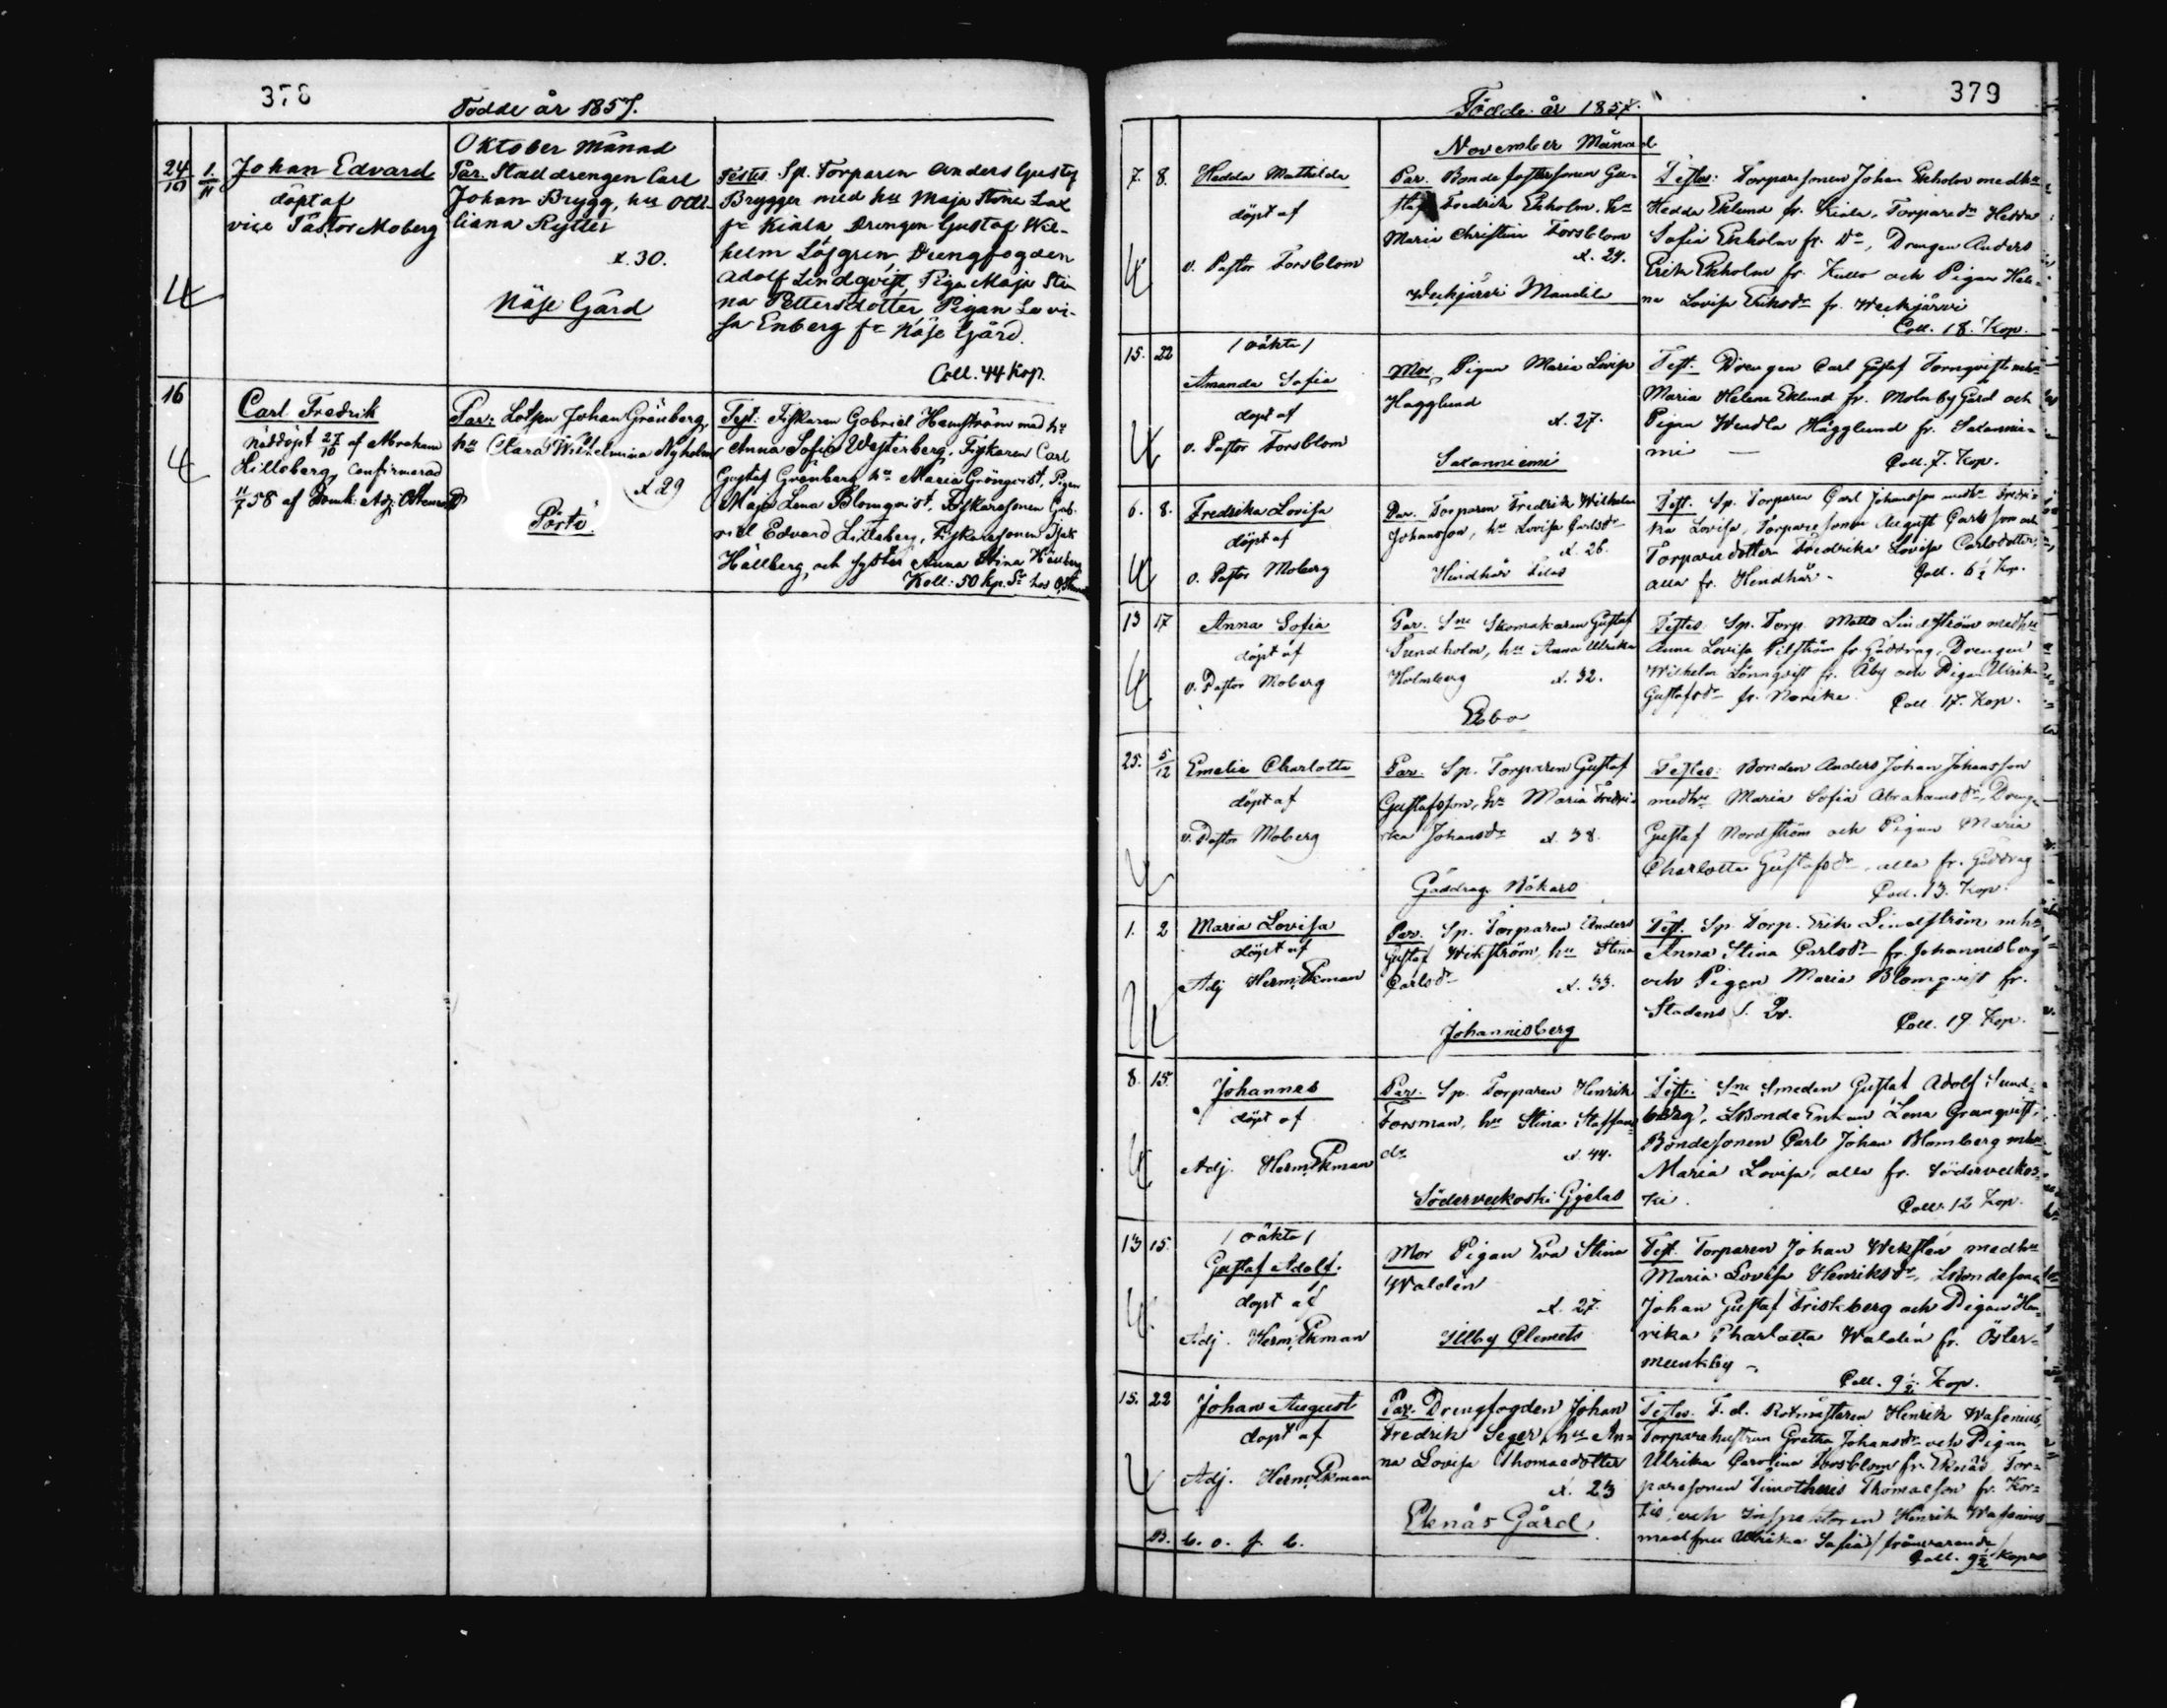 378
Födde år 1857.
Oktober månad
24/10 1/11 Johan Edvard
döpt af
vice Pastor Moberg
Par. Stalldrengen Carl
Johan Brygg, hu Otti-
liana Rytter
æ. 30.
Näse Gård
Testes Sp. Torparen Anders Gustaf
Brygger med hu Maja Stina Lax
fr Kiala, Drengen Gustaf Wil-
helm Löfgren, Drengfogden
Adolf Lindqvist, Pigan Maja Sti-
na Pettersdotter, Pigan Lovi-
sa Enberg fr Näse Gård.
Coll. 44 Kop.
16
Carl Fredrik
nöddöpt 27/10 af Abraham
Lilleberg, confirmerad
11/7 58 af Domk. Adj.
Par: Lotsen Johan Grönberg,
hu Clara Wilhelmina Nyholm
æ 29
Pörtö
Test: Fiskaren Gabriel Hemström med hu
Anna Sofia Westerberg, Fiskaren Carl
Gustaf Grönberg hu Maria Grönqvist, Pigan
Maja Lena Blomqvist, Fiskaresonen Gab-
riel Edvard Lilleberg, Fiskaresonen Isak
Hällberg, och syster Anna Stina Hällberg
Koll: 50 kp. Sr hos
379
Födde år 1857.
November Månad
7. 8. Hedda Mathilda
döpt af
v. Pastor Forsblom
Par. Bonde Gu-
staf Fredrik Ekholm, hu
Maria Christina Forsblom
æ. 24.
Weckjärvi Mandila
Testes: Torparesonen Johan Ekholm med hu
Hedda Eklund fr. Kiala, Torpare dr Hedda
Sofia Ekholm fr. Do, Drengen Anders
Erik Ekholm fr. Kullo och Pigan Hele-
na Lovisa Eriksdr fr. Weckjärvi
Coll. 18. Kop.
15. 22 / oäkta /
Amanda Sofia
döpt af
v. Pastor Forsblom
Mor, Pigan Maria Lovisa
Hägglund
æ. 27.
Saxanniemi
Test. Drengen Carl Gustaf Tornqvist m. hu
Maria Helena Eklund fr. Molnby Gård och
Pigan Wendla Hägglund fr. Saxannie-
mi —
Coll. 7. Kop.
6. 8. Fredrika Lovisa
döpt af
v. Pastor Moberg
Par. Torparen Fredrik Wilhelm
Johansson, hu Lovisa Carlsdr
æ. 26.
Hindhår
Test. Sp. Torparen Carl Johansson med hu Fredri-
ka Lovisa, Torparesonen August Carlsson och
Torparedottern Fredrika Lovisa Carlsdotter,
alla fr. Hindhår.
Coll. 6½ Kop.
13 17 Anna Sofia
döpt af
v. Pastor Moberg
Par. Sne Skomakaren Gustaf
Sundholm, hu Anna Ulrika
Holmberg æ. 32.
Ebbo
Testes Sp. Torp. Matts Lindström med hu
Anna Lovisa Pilström fr Gäddrag, Drengen
Wilhelm Lönnqvist fr. Åby och Pigan Ulrika
Gustafsdr fr. Norike
Coll 17. Kop.
25. 5/12 Emelie Charlotta
döpt af
v. Pastor Moberg
Par. Sp. Torparen Gustaf
Gustafsson, hu Maria Fredri-
ka Johansdr æ. 38.
Gäddrag Bökars
Testes: Bonden Anders Johan Johansson
med hu Maria Sofia Abrahamsdr, Drengen
Gustaf Nordström och Pigan Maria
Charlotta Gustafsdr, alla fr. Gäddrag
Coll. 13. Kop.
1. 2 Maria Lovisa
döpt af
Adj Herm. Ekman
Par. Sp. Torparen Anders
Gustaf Wikström, hu Stina
Carlsdr
æ. 33.
Johannisberg
Test. Sp. Torp. Erik Lindström m. hu
Anna Stina Carlsdr fr. Johannisberg
och Pigan Maria Blomqvist fr.
Stadens
Coll. 19 Kop.
8. 15. Johannes
döpt af
Adj. Herm. Ekman
Par. Sp. Torparen Henrik
Forsman, hu Stina Staffans
dr æ. 44.
Söderveckoski Gjelas
Test. Sne Smeden Gustaf Adolf Sund-
berg, LBonde Enkan Lena Granqvist,
Bondesonen Carl Johan Blomberg m hu
Maria Lovisa, alla fr. Söderveckos-
ki.
Coll. 12 Kop.
13 15. / oäkta /
Gustaf Adolf.
döpt af
Adj. Herm. Ekman
Mor Pigan Eva Stina
Waldén
æ. 27.
Illby Clemets
Test. Torparen Johan Wekstén med hu
Maria Lovisa Henriksdr, LBondesonen
Johan Gustaf Friskberg och Pigan Hen-
rika Charlotta Waldén fr. Öster-
munkby
Coll. 9½ Kop.
15. 22 Johan August
döpt af
Adj. Herm. Ekman
Par. Drengfogden Johan
Fredrik Seger, hu An-
na Lovisa Thomasdotter
æ. 23
Eknäs Gård
Testes. F. d. Rotmästaren Henrik Wasenius,
Torparehustrun Gretha Johansdr och Pigan
Ulrika Carolina Forsblom fr. Eknäs, Tor-
paresonen Timotheus Thomasson fr. Kor-
tis, och Inspektoren Henrik Wasenius
med fru Ulrika Sofia / frånvarande /
Coll. 9½ Kopek
B. b. o. f. b.